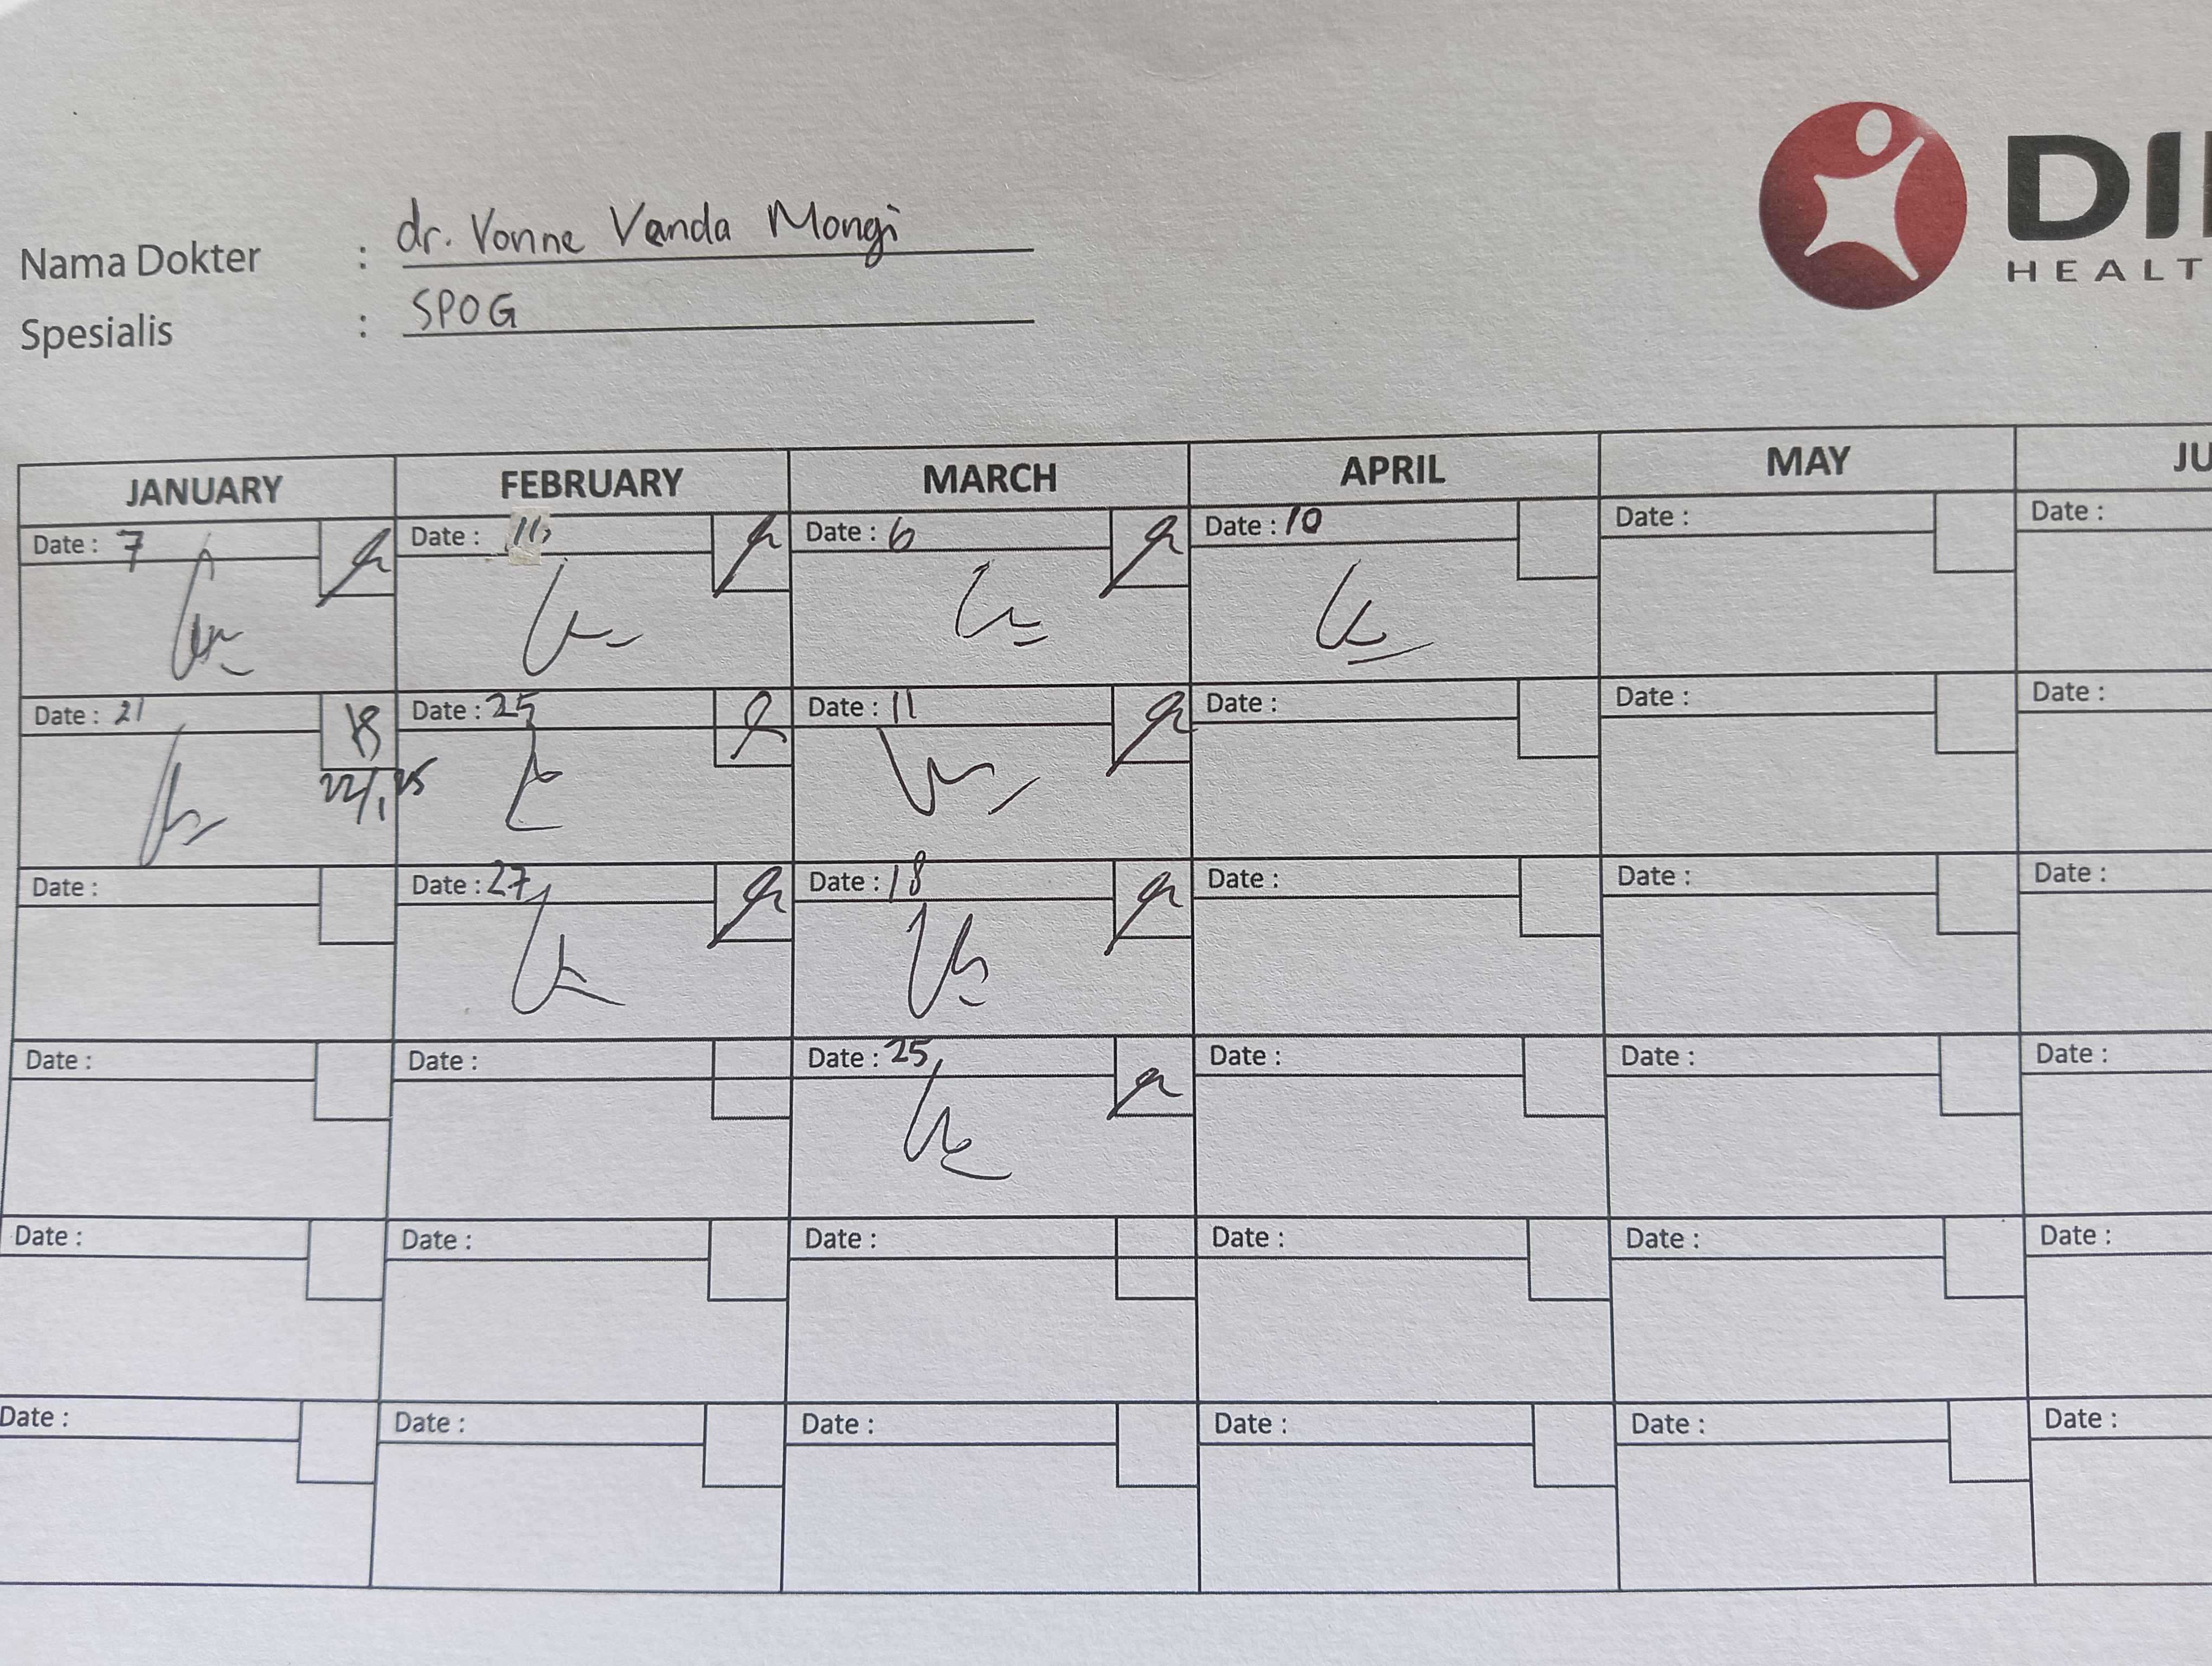 Nama Dokter : dr. Vonne Vanda Mongi
Spesialis : SPOG
DI
HEALT
JANUARY FEBRUARY MARCH APRIL MAY JU
Date : 7 Date : 11 Date : 6 Date : 10 Date : Date :
Date : 21 18 Date : 25 Date : 11 Date : Date : Date :
22/1 25
Date : Date : 27 Date : 18 Date : Date : Date :
Date : Date : Date : 25 Date : Date : Date :
Date : Date : Date : Date : Date : Date :
Date : Date : Date : Date : Date : Date :